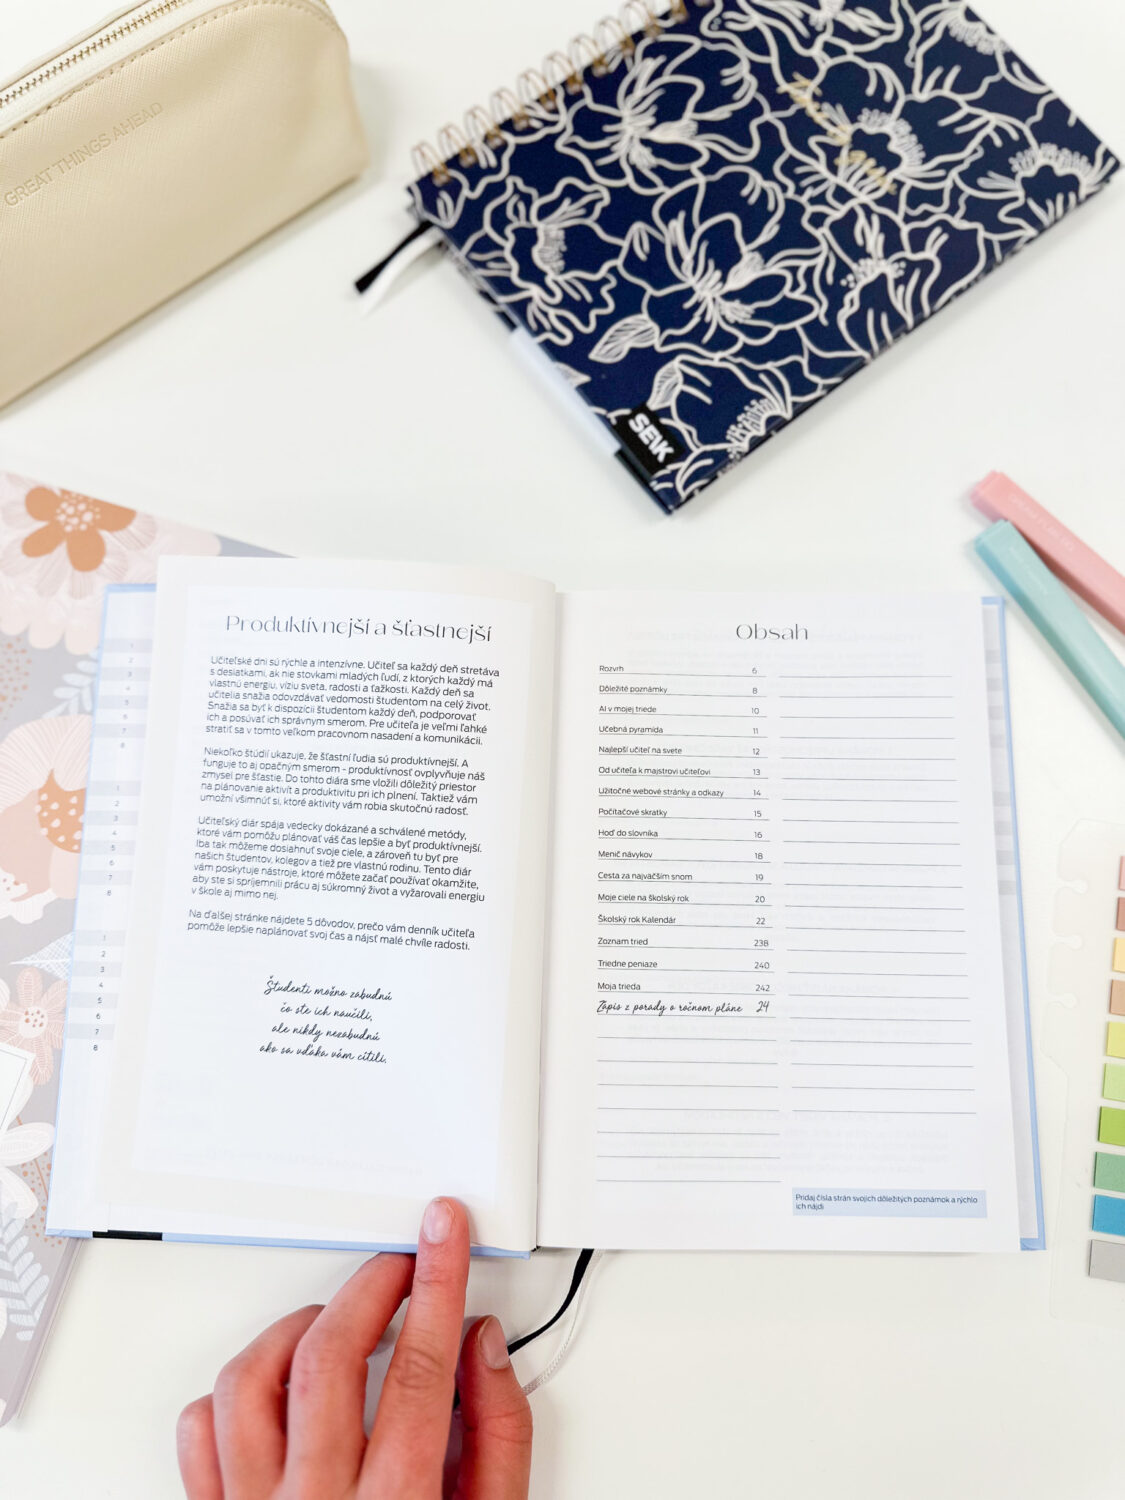 GREAT THINGS AHEAD
SE\K
Produktívnejší a šťastnejší
Učiteľské dni sú rýchle a intenzívne. Učiteľ sa každý deň stretáva
s desiatkami, ak nie stovkami mladých ľudí, z ktorých každý má
vlastnú energiu, víziu sveta, radosti a ťažkosti. Každý deň sa
učitelia snažia odovzdávať vedomosti študentom na celý život.
Snažia sa byť k dispozícii študentom každý deň, podporovať
ich a posúvať ich správnym smerom. Pre učiteľa je veľmi ľahké
stratiť sa v tomto veľkom pracovnom nasadení a komunikácii.
Niekoľko štúdií ukazuje, že šťastní ľudia sú produktívnejší. A
funguje to aj opačným smerom - produktívnosť ovplyvňuje náš
zmysel pre šťastie. Do tohto diára sme vložili dôležitý priestor
na plánovanie aktivít a produktivitu pri ich plnení. Taktiež vám
umožní všimnúť si, ktoré aktivity vám robia skutočnú radosť.
Učiteľský diár spája vedecky dokázané a schválené metódy,
ktoré vám pomôžu plánovať váš čas lepšie a byť produktívnejší.
Iba tak môžeme dosiahnuť svoje ciele, a zároveň tu byť pre
našich študentov, kolegov a tiež pre vlastnú rodinu. Tento diár
vám poskytuje nástroje, ktoré môžete začať používať okamžite,
aby ste si spríjemnili prácu aj súkromný život a vyžarovali energiu
v škole aj mimo nej.
Na ďalšej stránke nájdete 5 dôvodov, prečo vám denník učiteľa
pomôže lepšie naplánovať svoj čas a nájsť malé chvíle radosti.
Študenti možno zabudnú
čo ste ich naučili,
ale nikdy nezabudnú
ako sa vďaka vám cítili.
Obsah
Rozvrh 6
Dôležité poznámky 8
AI v mojej triede 10
Učebná pyramída 11
Najlepší učiteľ na svete 12
Od učiteľa k majstrovi učiteľovi 13
Užitočné webové stránky a odkazy 14
Počítačové skratky 15
Hoď do slovníka 16
Menič návykov 18
Cesta za najväčším snom 19
Moje ciele na školský rok 20
Školský rok Kalendár 22
Zoznam tried 238
Triedne peniaze 240
Moja trieda 242
Zápis z porady o ročnom pláne 24
Pridaj čísla strán svojich dôležitých poznámok a rýchlo
ich nájdi
1
2
3
4
5
6
7
8
1
2
3
4
5
6
7
8
1
2
3
4
5
6
7
8